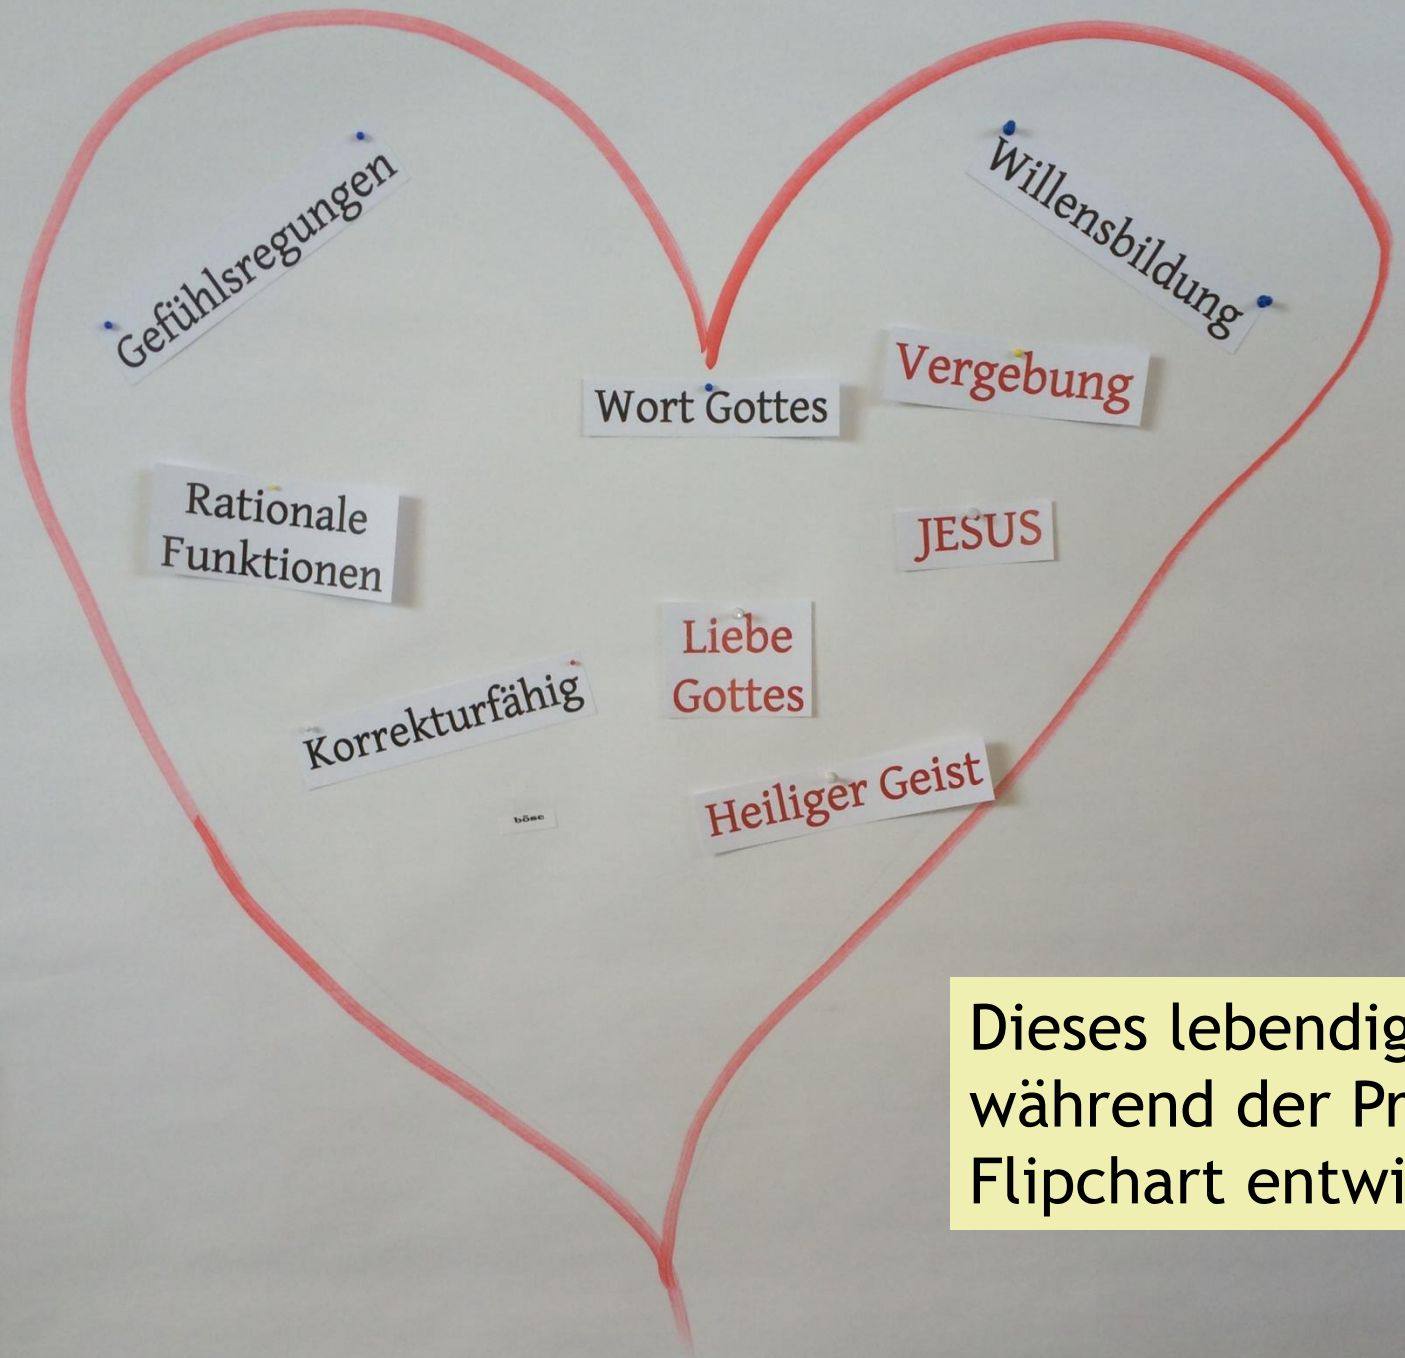 Gefühlsregungen
Willensbildung
Wort Gottes
Vergebung
Rationale
Funktionen
JESUS
Liebe
Gottes
Korrekturfähig
Heiliger Geist
böse
Dieses lebendig
während der Pr
Flipchart entwi